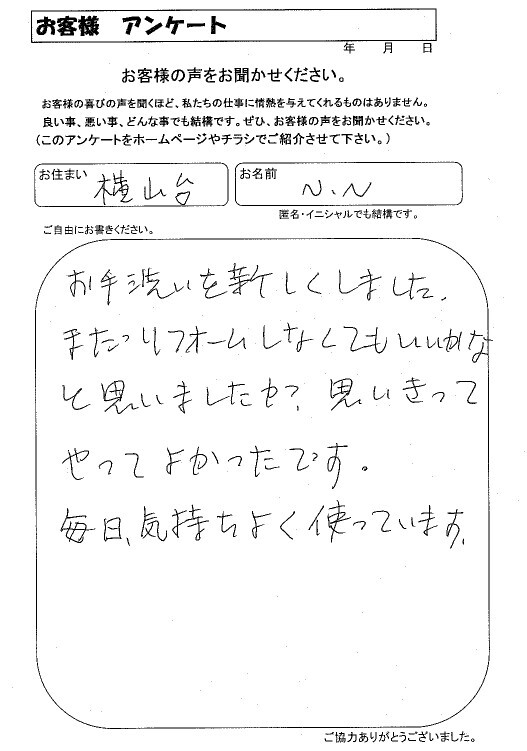 お客様 アンケート
年 月 日
お客様の声をお聞かせください。
お客様の喜びの声を聞くほど、私たちの仕事に情熱を与えてくれるものはありません。
良い事、悪い事、どんな事でも結構です。ぜひ、お客様の声をお聞かせください。
(このアンケートをホームページやチラシでご紹介させて下さい。)
お住まい 横山台
お名前 N.N
匿名・イニシャルでも結構です。
ご自由にお書きください。
お手洗いを新しくしました。
まだリフォームしなくてもいいかな
と思いましたが、思いきって
やってよかったです。
毎日、気持ちよく使っています。
ご協力ありがとうございました。